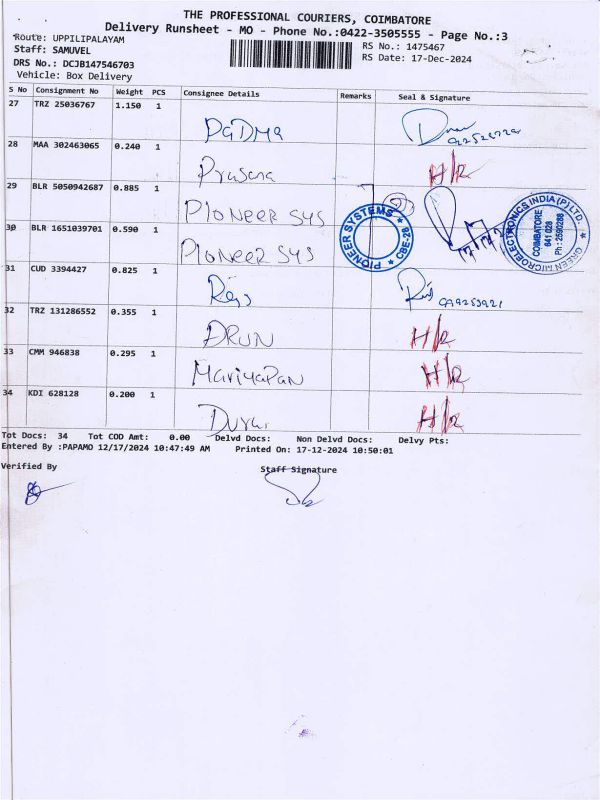 THE PROFESSIONAL COURIERS, COIMBATORE
Delivery Runsheet - MO - Phone No.:0422-3505555 - Page No.:3
Route: UPPILIPALAYAM
RS No.: 1475467
Staff: SAMUVEL
RS Date: 17-Dec-2024
DRS No.: DCJB147546703
Vehicle: Box Delivery
S No Consignment No Weight PCS Consignee Details Remarks Seal & Signature
27 TRZ 25036767 1.150 1
PADMA
28 MAA 302463065 0.240 1
Prasana H/R
29 BLR 5050942687 0.885 1
PIONEER SYS
30 BLR 1651039701 0.590 1
PIONEER SYS
PIONEER SYSTEMS
* CBE-28 *
GREEN MICROELECTRONICS INDIA (P) LTD.
COIMBATORE
641 028
31 CUD 3394427 0.825 1
32 TRZ 131286552 0.355 1
ARUN H/R
33 CMM 946838 0.295 1
Mariyapan H/R
34 KDI 628128 0.200 1
H/R
Tot Docs: 34 Tot COD Amt: 0.00 Delvd Docs: Non Delvd Docs: Delvy Pts:
Entered By :PAPAMO 12/17/2024 10:47:49 AM Printed On: 17-12-2024 10:50:01
Verified By Staff Signature